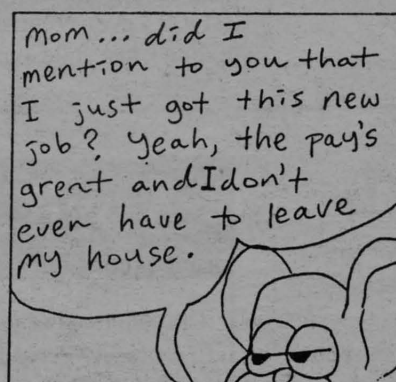 Mom... did I
mention to you that
I just got this new
job? Yeah, the pay's
great and I don't
even have to leave
my house.